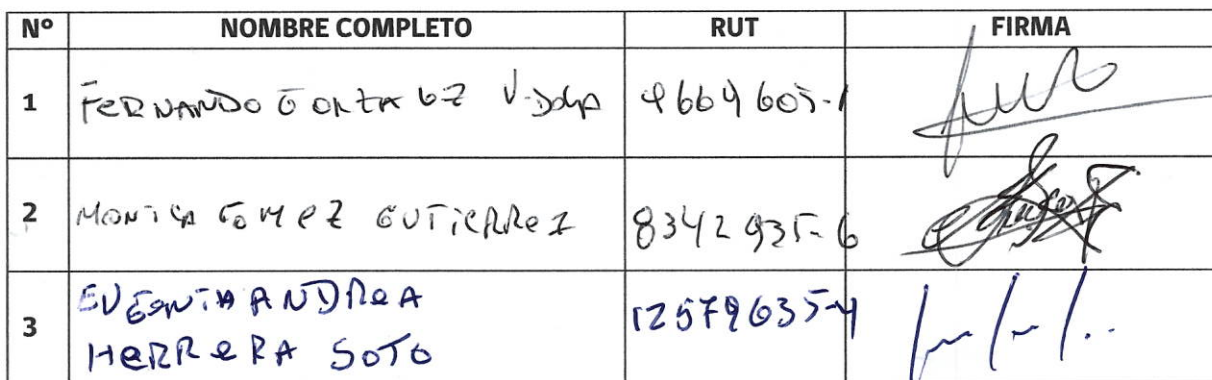 Nº NOMBRE COMPLETO RUT FIRMA
1 FERNANDO GONZALEZ 9664605-1
2 MONICA GOMEZ GUTIERREZ 8342935-6
3 EUGENIA ANDREA
HERRERA SOTO 12579635-4